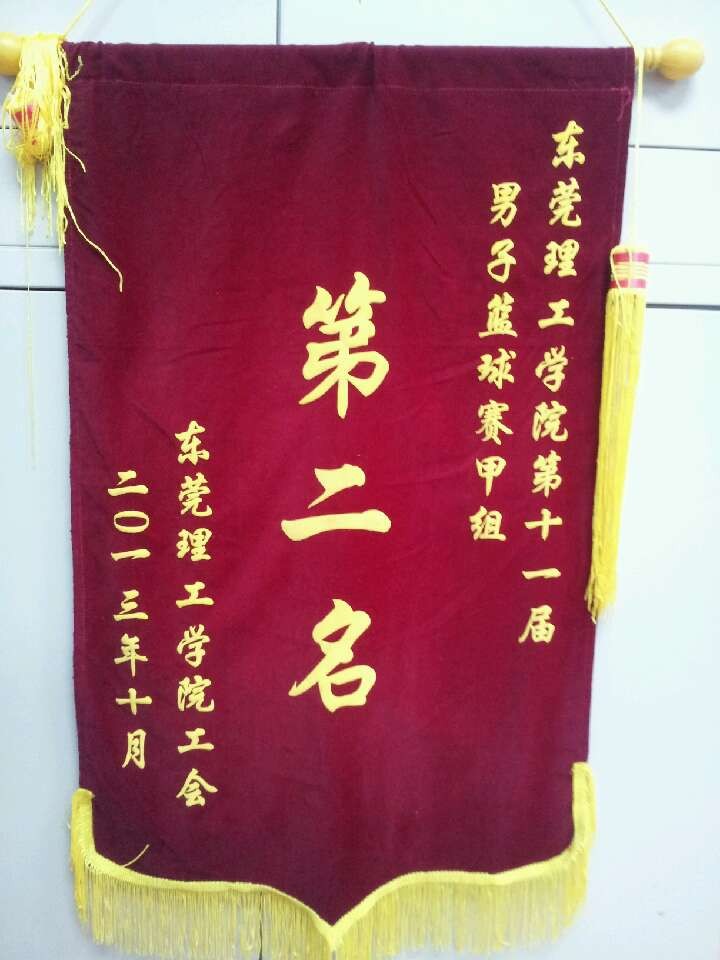 东莞理工学院第十一届
男子篮球赛甲组
第二名
东莞理工学院工会
二〇一三年十月